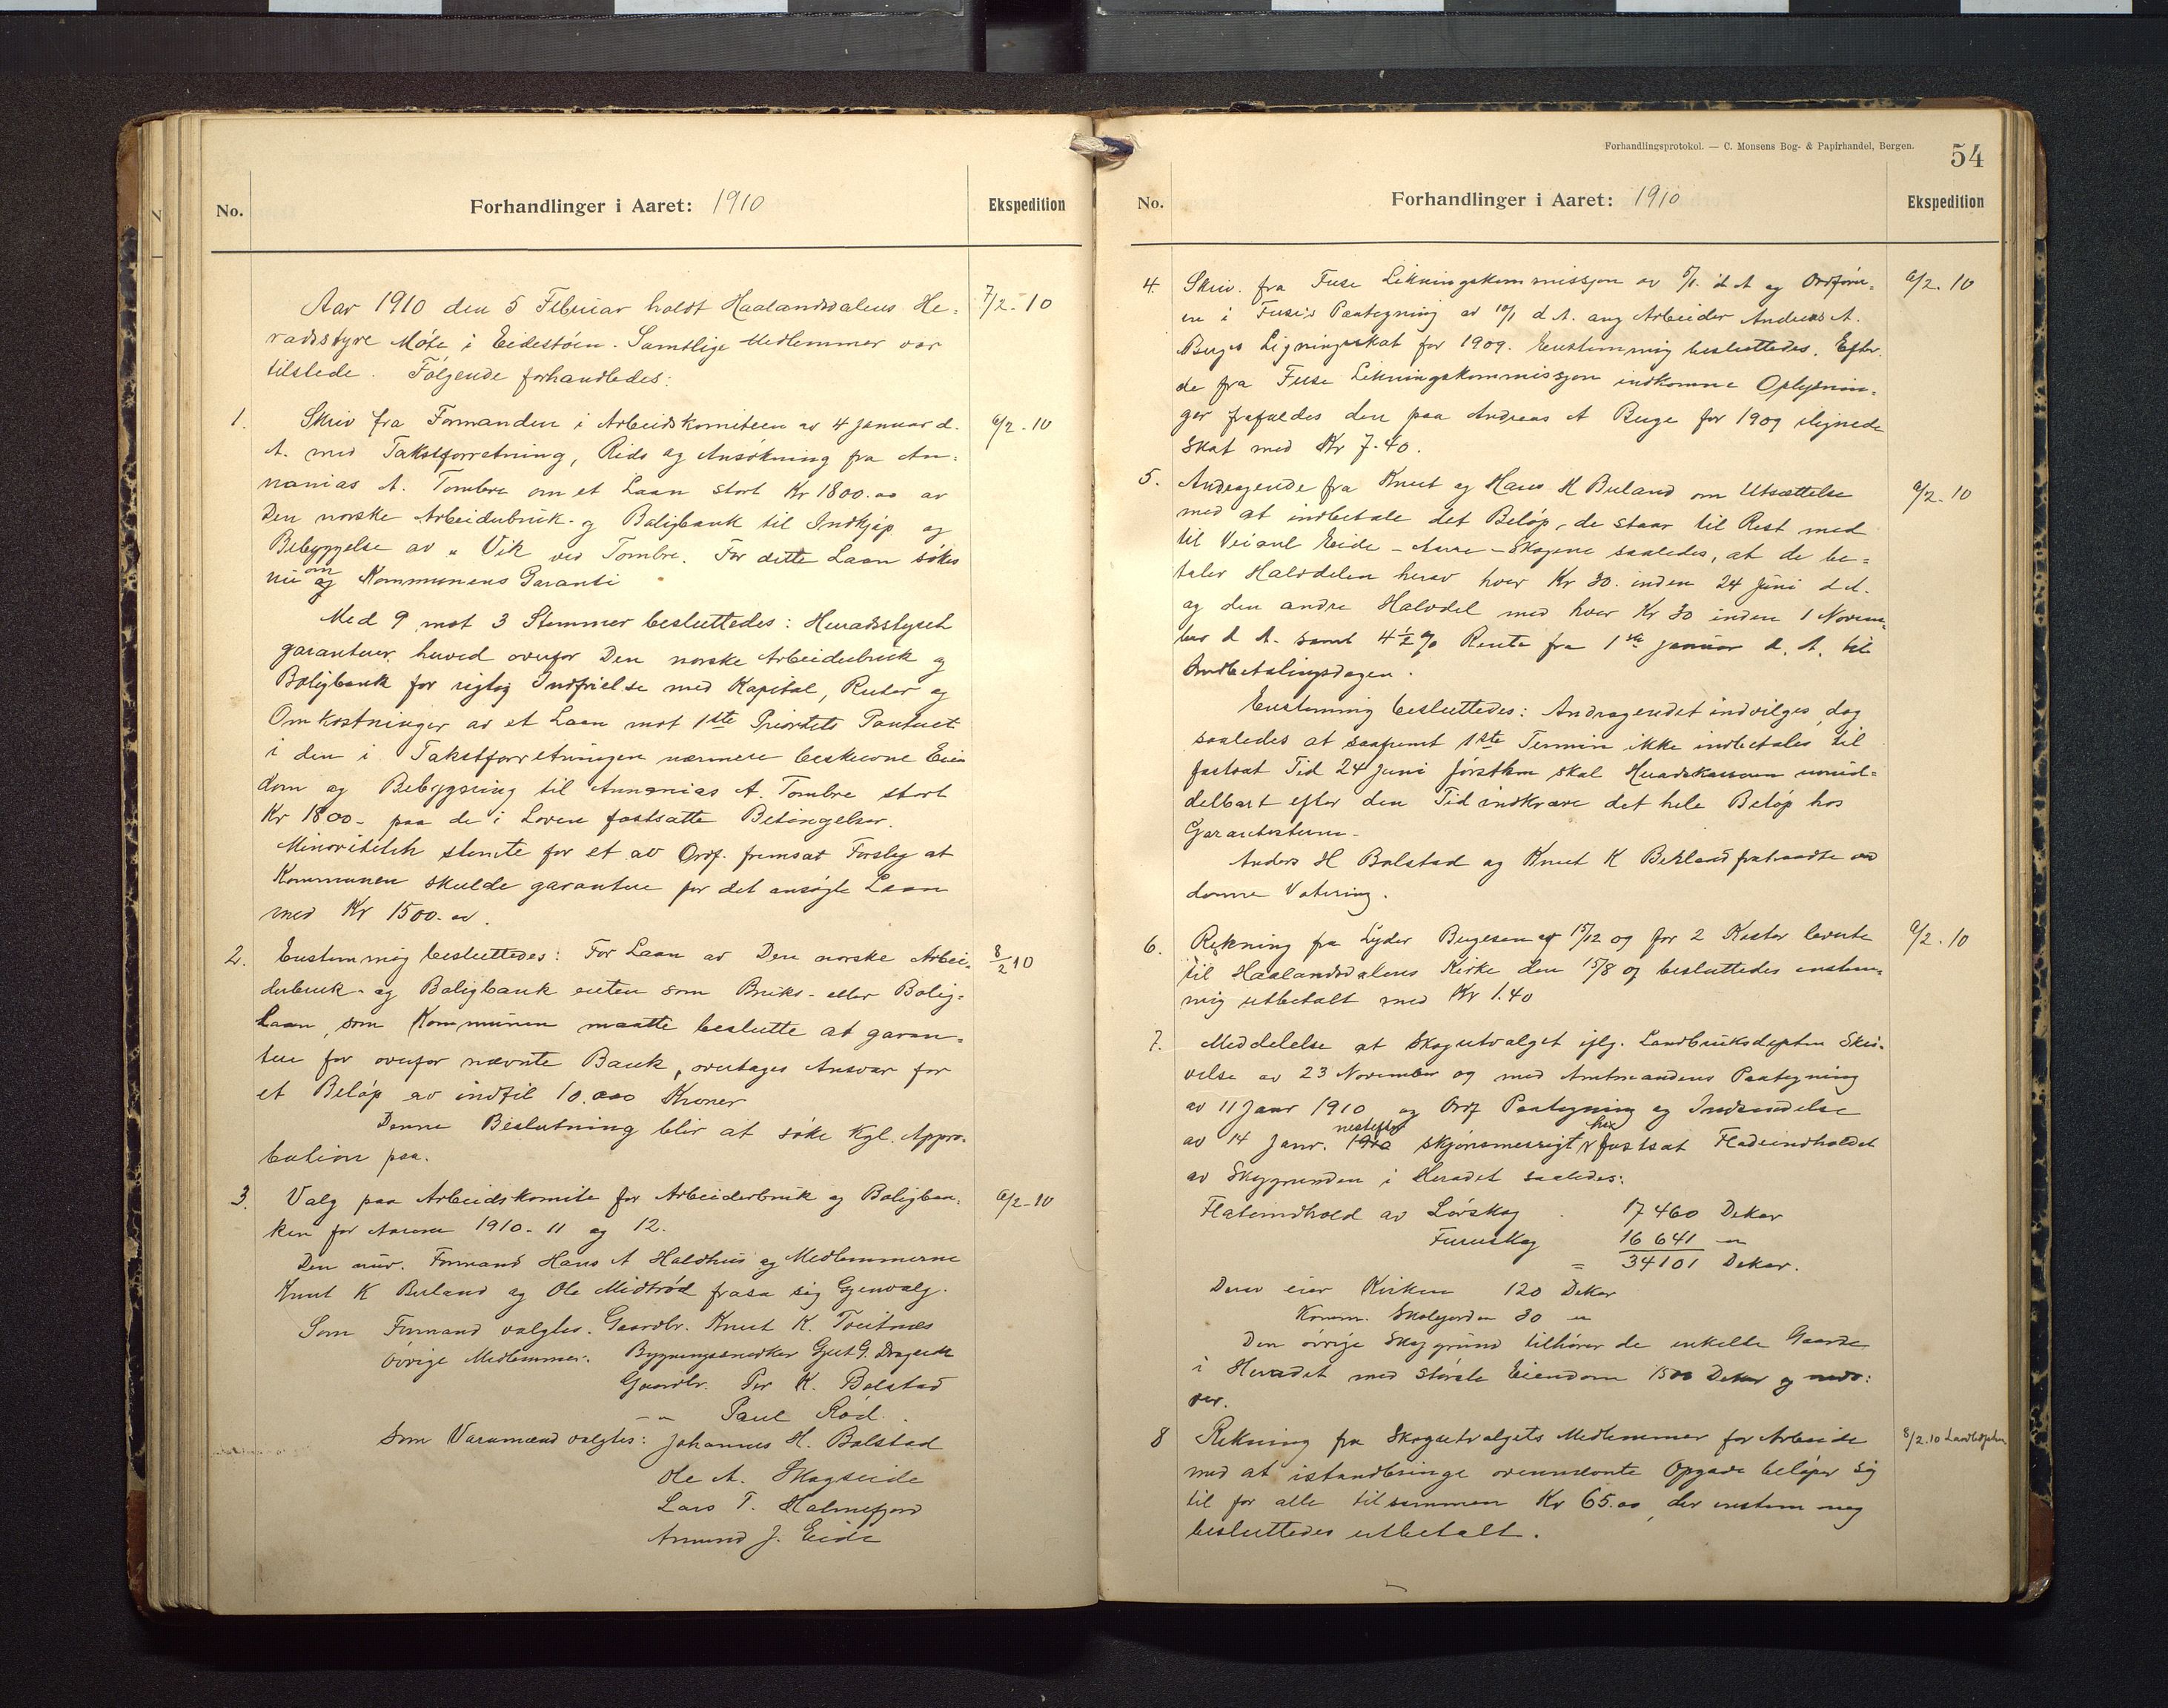 No.
Forhandlinger i Aaret: 1910
Ekspedition
Aar 1910 den 5 Februar holdt Haalandsdalens He-
7/2-10
radsstyre Møte i Eidestøen. Samtlige Medlemmer var
tilstede. Følgende forhandledes:
1. Skriv fra Formanden i Arbeidskomiteen av 4 Januar d.
9/2-10
A. med Takstforretning, Rids og Ansøkning fra An-
nanias A. Tombre om et Laan stort Kr 1800.00 av
Den norske Arbeiderbruk- og Boligbank til Indkjøp og
Bebyggelse av „ Vik ved Tombre. For dette Laan søkes
nu om og Kommunens Garanti
Med 9 mot 3 Stemmer besluttedes: Heradsstyret
garanterer herved overfor Den norske Arbeiderbruk og
Boligbank for rigtig Indfrielse med Kapital, Renter og
Omkostninger av et Laan mot 1ste Prioritets Panteret
i den i Takstforretningen nærmere beskrevne Eien
dom og Bebygning til Annanias A. Tombre stort
Kr 1800- paa de i Loven fastsatte Betingelser.
Minoriteten stemte for et av Ordf. fremsat Forslag at
Kommunen skulde garantere for det ansøgte Laan
med Kr 1500.00.
2. Enstemmig besluttedes: For Laan av Den norske Arbei-
8/2 10
derbruk- og Boligbank enten som Bruks- eller Bolig-
Laan, som Kommunen maatte beslutte at garan-
tere for overfor nævnte Bank, overtages Ansvar for
et Beløp av indtil 10.000 Kroner
Denne Beslutning blir at søke Kgl. Appro-
bation paa.
3. Valg paa Arbeidskomite for Arbeiderbruk og Boligban-
9/2-10
ken for Aarene 1910-11 og 12.
Den nuv. Formand Hans A Holdhus og Medlemmerne
Knut K Berland og Ole Midtrød frasa sig Gjenvalg.
Som Formand valgtes. Gaardbr. Knut K. Tveitnes
øvrige Medlemmer: Bygningssnedker Gjert G. Drageide
Gaardbr. Per K. Bolstad
-"- Paul Rød.
Som Varamænd valgtes: Johannes H. Bolstad
Ole A. Skogseide
Lars T. Holmefjord
Amund J. Eide
Forhandlingsprotokol. — C. Monsens Bog- & Papirhandel, Bergen.
54
No.
Forhandlinger i Aaret: 1910
Ekspedition
4. Skriv. fra Fuse Likningskommissjon av 5/1. d A og Ordfører-
9/2. 10
en i Fuse's Paategning av 10/1 d A. ang Arbeider Andreas A.
Berges Ligningsskat for 1909. Enstemmig besluttedes. Efter
de fra Fuse Likningskommissjon indkomne Oplysnin-
ger frafaldes den paa Andreas A Berge for 1909 ilignede
Skat med Kr 7.40.
5. Andragende fra Knut og Hans H Berland om Utsættelse
9/2-10
med at indbetale det Beløp, de staar til Rest med
til Veianl Eide - Aarre - Skogene saaledes, at de be-
taler Halvdelen herav hver Kr 30. inden 24 Juni d A.
og den andre Halvdel med hver Kr 30 inden 1 Novem-
ber d A. samt 4½% Rente fra 1ste Januar d. A. til
Indbetalingsdagen.
Enstemmig besluttedes: Andragendet indvilges, dog
saaledes at saafremt 1ste Termin ikke indbetales til
fastsat Tid 24 Juni førstkm skal Heradskassereren umid-
delbart efter den Tid indkræve det hele Beløp hos
Garantisterne.
Anders H Bolstad og Knut K Berland fratraadte ved
denne Votering.
6. Rekning fra Lyder Bergesen af 15/12 09 for 2 Koster leverte
9/2-10
til Haalandsdalens Kirke den 15/8 09 besluttedes enstem-
mig utbetalt med Kr 1.40
7. Meddelelse at Skogutvalget iflg. Landbruksdeptm Skri-
velse av 23 November 09 med Amtmandens Paategning
av 11 Janr 1910 og Ordf Paategning og Indsendelse
av 14 Janr. 1910 skjønsmessigt har fastsat Fladeindholdet
av Skoggrunden i Heradet saaledes:
Flateindhold av Løvskog 17 460 Dekar
Furuskog 16 641 "
= 34101 Dekar.
Derav eier Kirken 120 Dekar
Komm. Skolejorden 30 "
Den øvrige Skoggrund tilhører de enkelte Gaarde
i Heradet med største Eiendom 1500 Dekar og nedo-
ver.
8 Rekning fra Skogutvalgets Medlemmer for Arbeide
8/2.10
med at istandbringe ovennævnte Opgave beløper sig
til for alle tilsammen Kr 65.00, der enstemmig
besluttedes utbetalt.